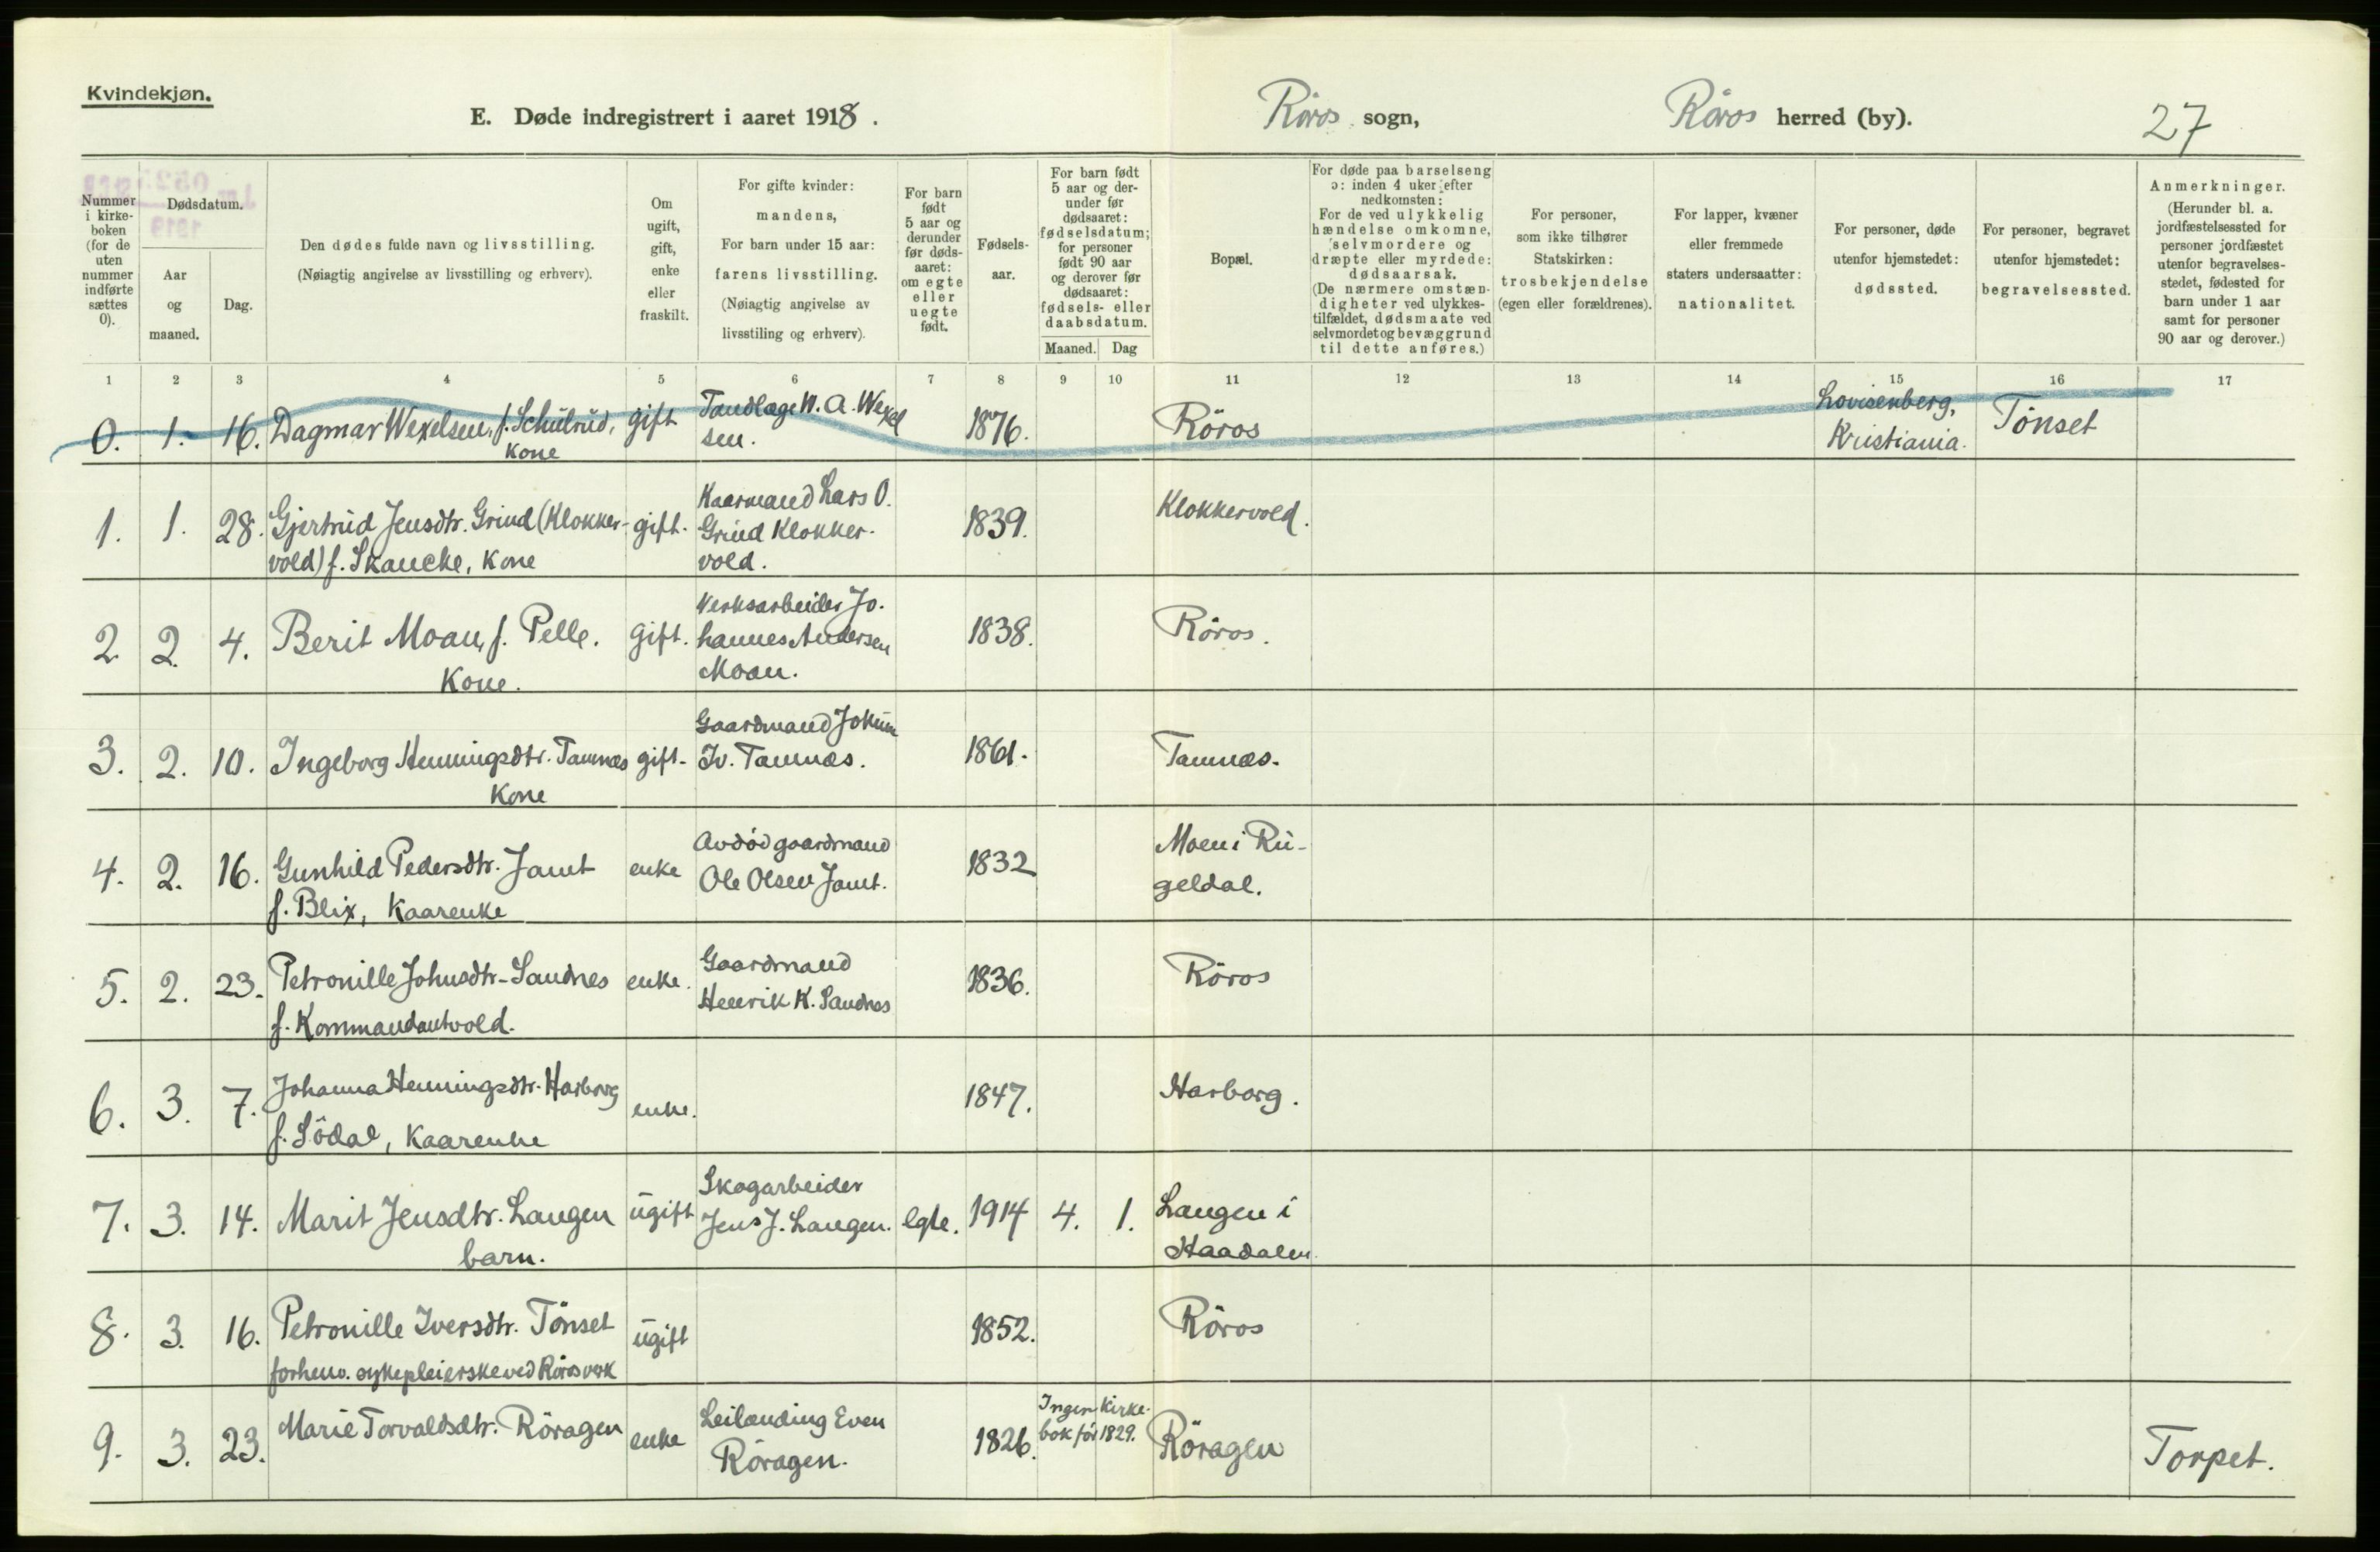 Kvindekjøn.
E. Døde indregistrert i aaret 1918.
Röros sogn,
Röros herred (by).
27
Nummer
i kirke-
boken
(for de
uten
nummer
indførte
sættes
0).
Dødsdatum.
Aar
og
maaned.
Dag.
Den dødes fulde navn og livsstilling.
(Nøiagtig angivelse av livsstilling og erhverv).
Om
ugift,
gift,
enke
eller
fraskilt.
For gifte kvinder:
mandens,
For barn under 15 aar:
farens livsstilling.
(Nøiagtig angivelse av
livsstiling og erhverv).
For barn
født
5 aar og
derunder
før døds-
aaret:
om egte
eller
uegte
født.
Fødsels-
aar.
For barn født
5 aar og der-
under før
dødsaaret:
fødselsdatum;
for personer
født 90 aar
og derover før
dødsaaret:
fødsels- eller
daabsdatum.
Maaned. Dag
Bopæl.
For døde paa barselseng
ɔ: inden 4 uker efter
nedkomsten:
For de ved ulykkelig
hændelse omkomne,
selvmordere og
dræpte eller myrdede:
dødsaarsak.
(De nærmere omstæn-
digheter ved ulykkes-
tilfældet, dødsmaate ved
selvmordet og bevæggrund
til dette anføres.)
For personer,
som ikke tilhører
Statskirken:
trosbekjendelse
(egen eller forældrenes).
For lapper, kvæner
eller fremmede
staters undersaatter:
nationalitet.
For personer, døde
utenfor hjemstedet:
dødssted.
For personer, begravet
utenfor hjemstedet:
begravelsessted.
Anmerkninger.
(Herunder bl. a.
jordfæstelsessted for
personer jordfæstet
utenfor begravelses-
stedet, fødested for
barn under 1 aar
samt for personer
90 aar og derover.)
1 2 3 4 5 6 7 8 9 10 11 12 13 14 15 16 17
0. 1. 16. Dagmar Wexelsen, f. Schülrud, gift Tandlæge W. A. Wexel 1876. Röros Lovisenberg, Tönset
Kone sen. Kristiania.
1. 1. 28. Gjertrud Jensdtr. Grind (Klokker- gift. Kaarmand Lars O. 1839. Klokkervold.
vold) f. Skancke, Kone Grind Klokker-
vold.
2 2. 4. Berit Moan, f. Pelle. gift. Verksarbeider Jo- 1838. Röros.
Kone. hannes Andersen
Moan.
3. 2. 10. Ingeborg Henningsdtr. Tamnæs gift. Gaardmand Jokum 1861. Tamnæs.
Kone Iv. Tamnæs.
4. 2. 16. Gunhild Pedersdtr. Jamt enke Avdöd gaardmand 1832 Moen i Ru-
f. Blix, Kaarenke Ole Olsen Jamt. geldal.
5. 2. 23. Petronille Johnsdtr. Sandnes enke. Gaardmand 1836. Röros
f. Kommandantvold. Henrik K. Sandnes
6. 3. 7. Johanna Henningsdtr. Harborg enke. 1847. Harborg.
f. Södal, Kaarenke
7. 3. 14. Marit Jensdtr. Langen ugift Skogarbeider egte. 1914 4. 1. Langen i
barn. Jens J. Langen. Haadalen.
8. 3. 16. Petronille Iversdtr. Tönset ugift 1852. Röros
forhenv. sykepleierske ved Rörosverk
9. 3. 23. Marie Torvaldsdtr. Röragen enke Leilænding Even 1826. Ingen kirke- Röragen Torpet.
Röragen. bok för 1829.